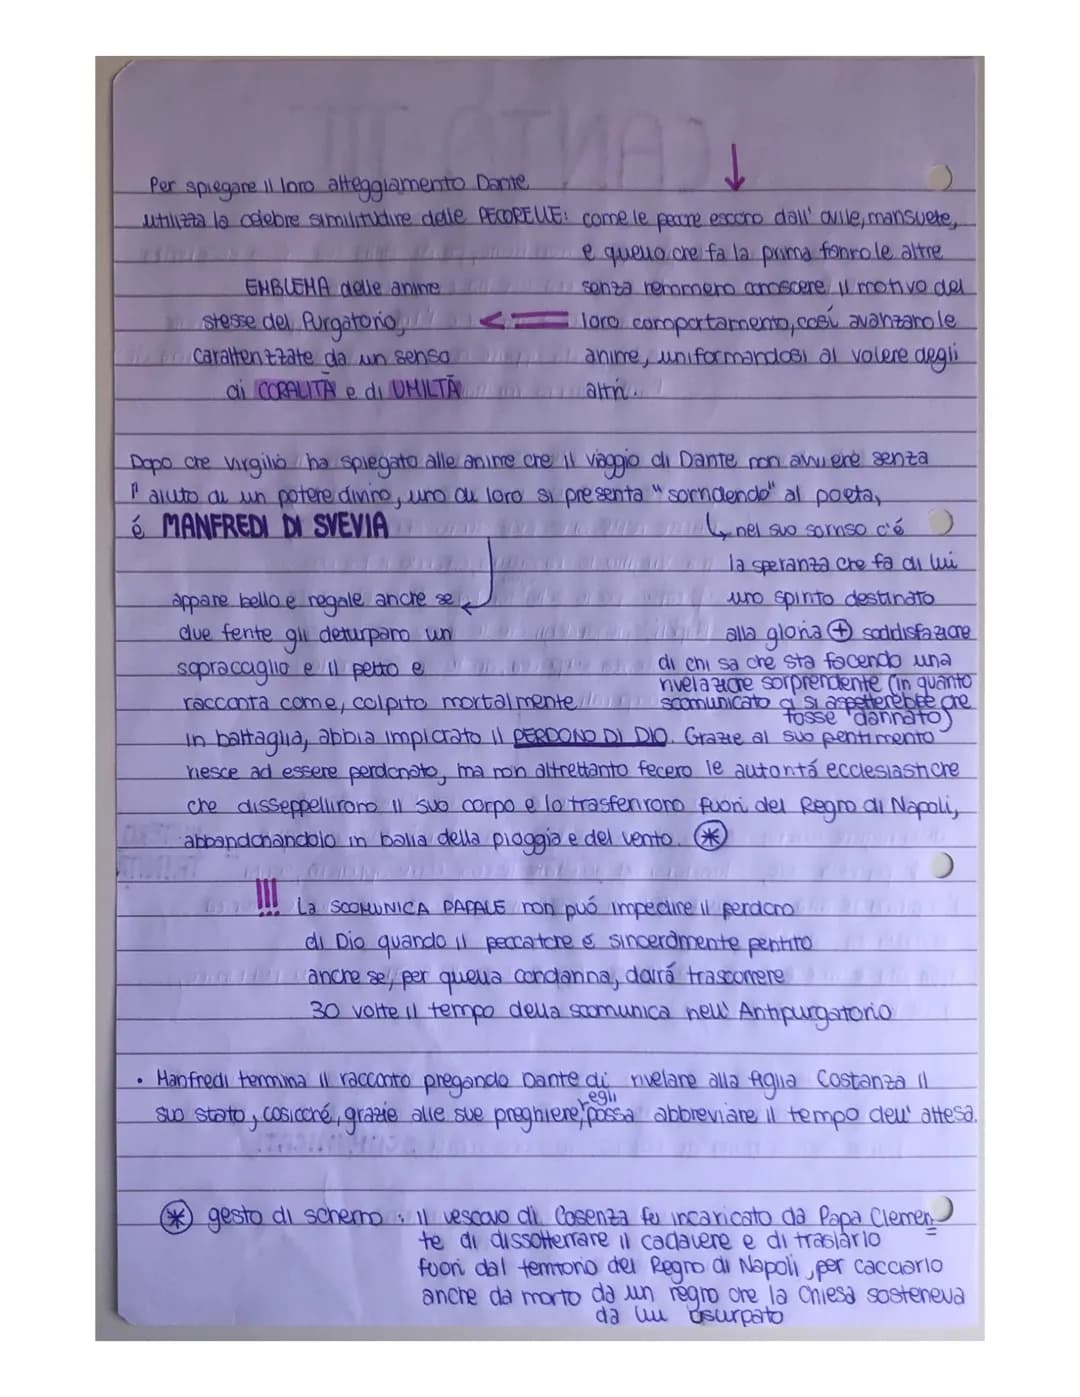 Per spiegare il loro atteggiamento Dante
utilizza la celebre similitudine delle PECORELLE: come le pecore escono dall' ovile, mansuete,
e quello che fa la prima fanno le altre
senza nemmeno conoscere il motivo del
loro comportamento, così avanzano le
anime, uniformandosi al volere degli
altri.
EMBLEMA delle anime
stesse del Purgatorio,
caratterizzate da un senso
di CORALITÀ e di UMILTÀ
Dopo che Virgilio ha spiegato alle anime che il viaggio di Dante non avviene senza
l'aiuto di un potere divino, uno di loro si presenta "sorridendo" al poeta,
é MANFREDI DI SVEVIA
nel suo sorriso c'é
la speranza che fa di lui
uno spirito destinato
alla gloria + soddisfazione
di chi sa che sta facendo una
rivelazione sorprendente (in quanto
scomunicato ci si aspetterebbe che
fosse dannato)
appare bello e regale anche se
due ferite gli deturpano un
sopracciglio e il petto e
racconta come, colpito mortalmente
in battaglia, abbia implorato il PERDONO DI DIO. Grazie al suo pentimento
riesce ad essere perdonato, ma non altrettanto fecero le autoritá ecclesiastiche
che disseppellirono il suo corpo e lo trasferirono fuori del Regno di Napoli,
abbandonandolo in balia della pioggia e del vento. *
!!! La SCOMUNICA PAPALE non puó impedire il perdono
di Dio quando il peccatore é sinceramente pentito
anche se, per quella condanna, dovrá trascorrere
30 volte il tempo della scomunica nell' Antipurgatorio
• Manfredi termina il racconto pregando Dante di rivelare alla figlia Costanza il
suo stato, cosicché, grazie alle sue preghiere, egli possa abbreviare il tempo dell' attesa.
* gesto di scherno: il vescovo di Cosenza fu incaricato da Papa Clemen=
te di dissotterrare il cadavere e di traslarlo
fuori dal territorio del Regno di Napoli, per cacciarlo
anche da morto da un regno che la Chiesa sosteneva
da lui usurpato